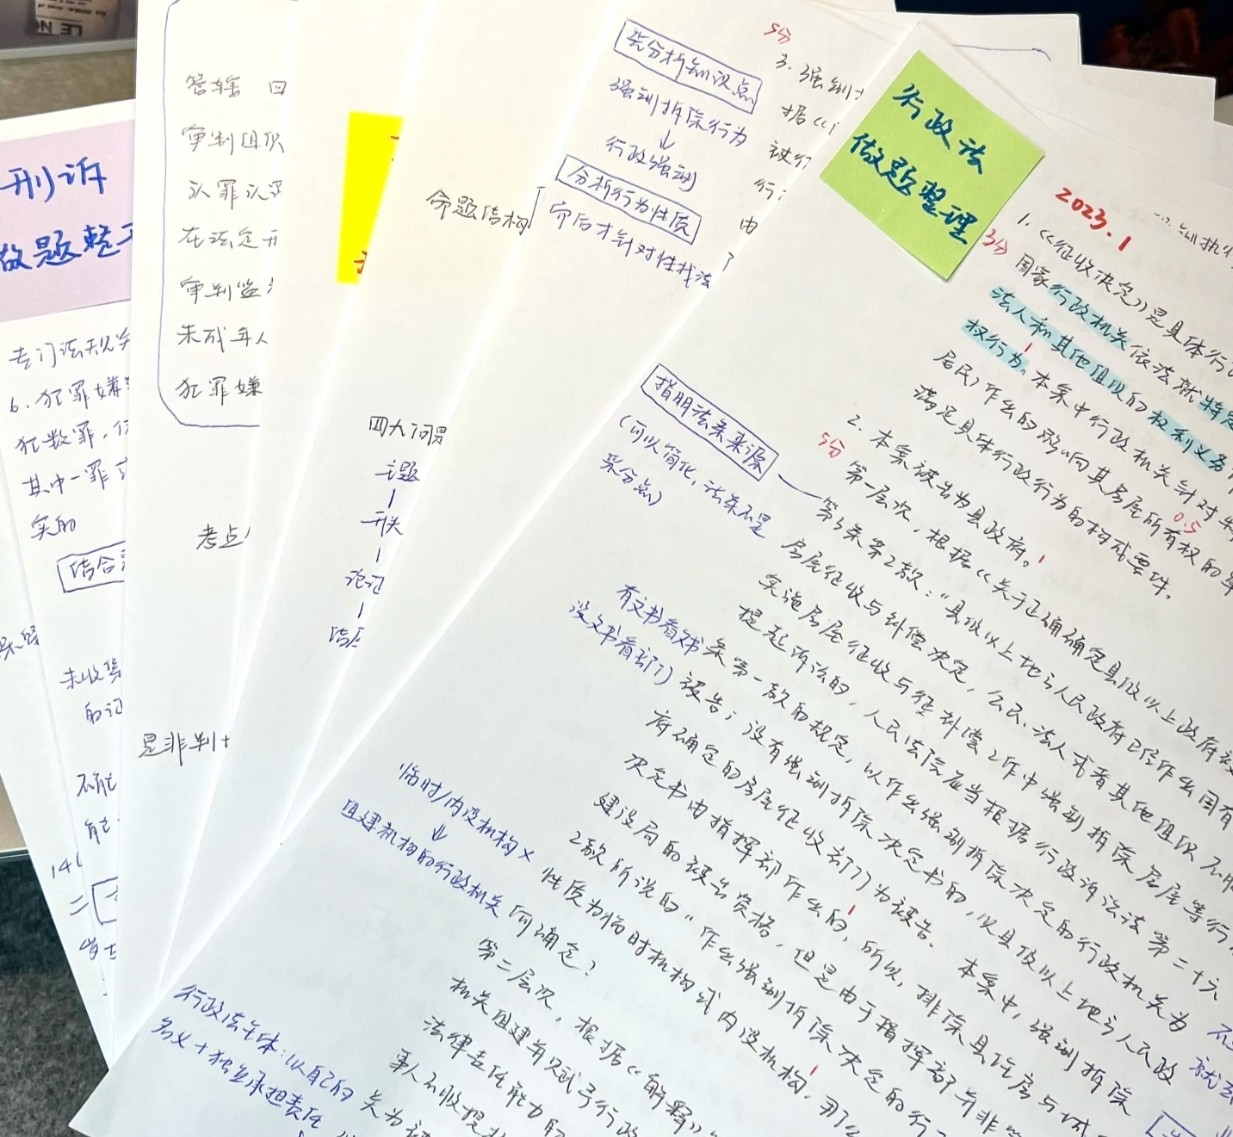 刑诉
做题整理
6. 犯罪嫌
犯数罪，
其中一罪
实的
结合
的证
管辖 回
审判组织
认罪认罚
在法定刑
审判监
未成年人
犯罪嫌
考点
是非判
四大问题
命题结构
采分析知识点
强制拆除行为
↓
行政强制
分析行为性质
而后才针对性找法
5分
3. 强制
据《
行政法
做题整理
2023.1
1.《征收决定》是具体行
3分
国家行政机关依法就特定
法人和其他组织的权利义务
权行为。本案中行政机关针对
居民)作出的影响其房屋所有权的
满足具体行政行为的构成要件。
0.5
2. 本案被告为县政府。1
5分
第一层次，根据《关于正确确定县级以上政府
第3条第2款："县级以上地方人民政府已经作出国有
房屋征收与补偿决定，公民、法人或者其他组织不服
实施房屋征收与征补偿工作中强制拆除房屋等行
提起诉讼的，人民法院应当根据行政诉讼法第二十六
条第一款的规定，以作出强制拆除决定的行政机关为
被告；没有强制拆除决定书的，以县级以上地方人民政
府确定的房屋征收部门为被告。 本案中，强制拆除
决定书由指挥部作出的，所以，排除县住房与城
建设局的被告资格，但是由于指挥部并非
2款所说的"作出强制拆除决定的行
性质为临时机构或内设机构，那么
何确定？
第二层次，根据《解释》
机关组建并赋予行政
法律责任能力的
事人不服提
关为被
指明法条来源
(可以简化，法条不是
采分点)
有文书看文书
没文书看部门
临时/内设机构×
⇓
组建机构的行政机关
行政法主体：以自己的
名义+独立承担责任